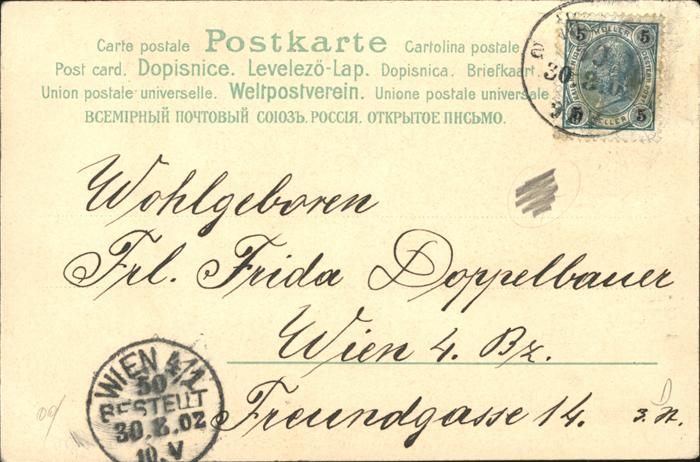 Carte postale Postkarte Cartolina postale
Post card. Dopisnice. Levelező-Lap. Dopisnica. Briefkaart
Union postale universelle. Weltpostverein. Unione postale universale
ВСЕМІРНЫЙ ПОЧТОВЫЙ СОЮЗЪ. РОССІЯ. ОТКРЫТОЕ ПИСЬМО.
5 5
30 8
5 HELLER 5
Wohlgeboren
Frl. Frida Doppelbauer
Wien 4. Bz.
Freundgasse 14. 3. St.
WIEN 4/1
50
BESTELLT
30.8.02
10.V